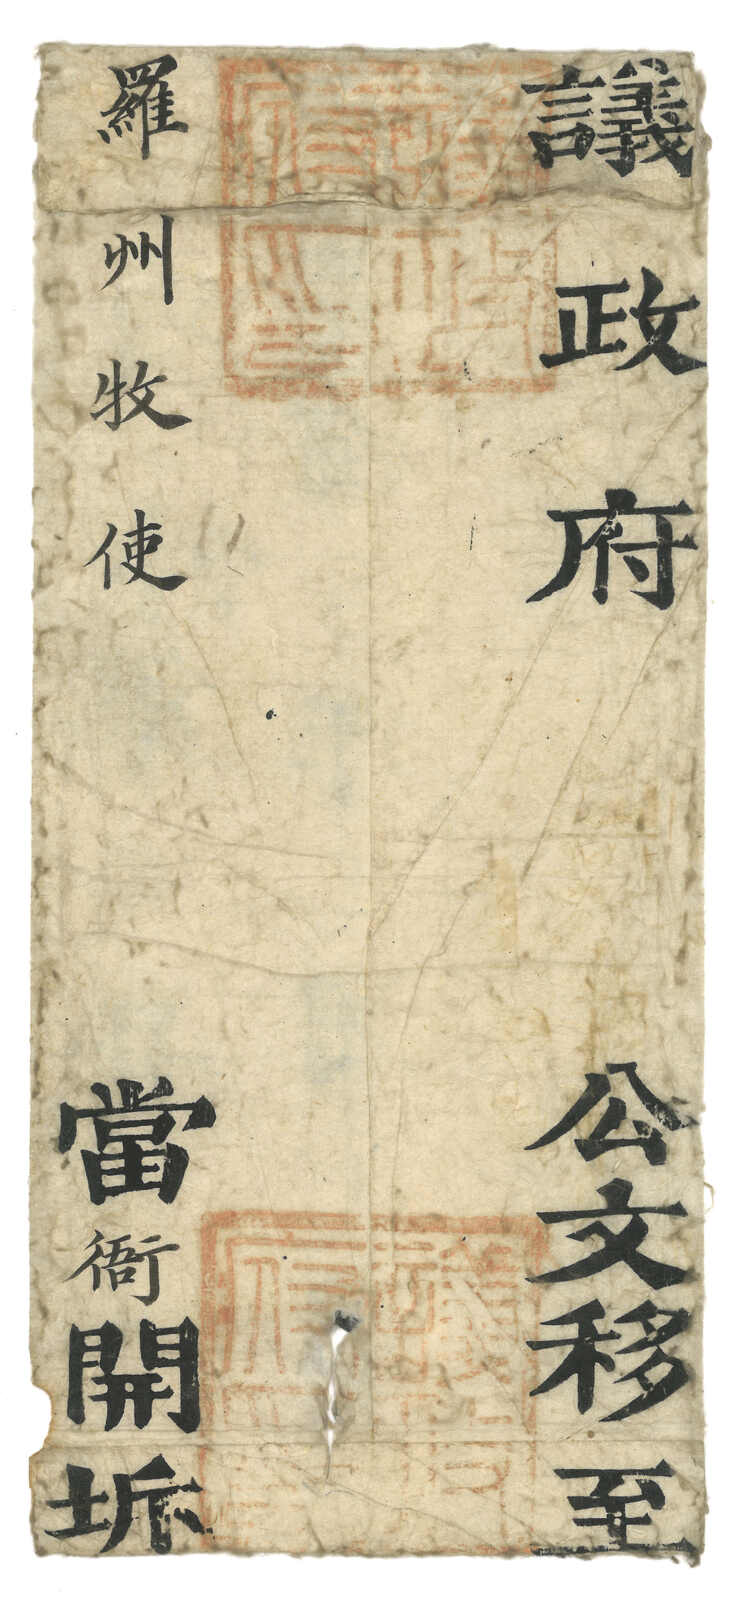 議政府
公文移至
羅州牧使
當衙開坼